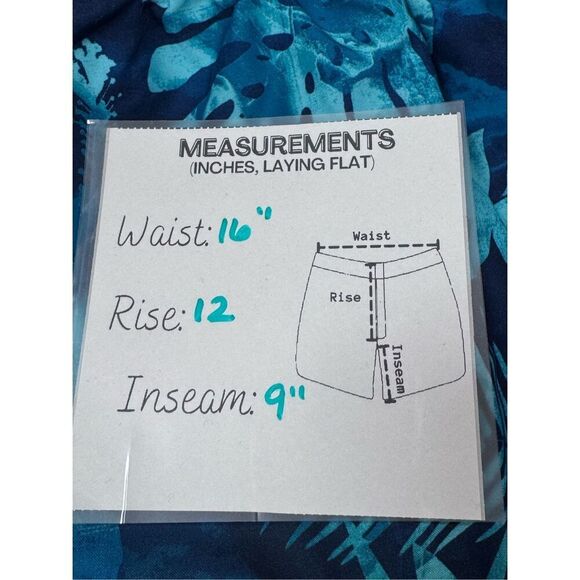 MEASUREMENTS
(INCHES, LAYING FLAT)
Waist: 16"
Waist
Rise
Rise: 12
Inseam
Inseam: 9"